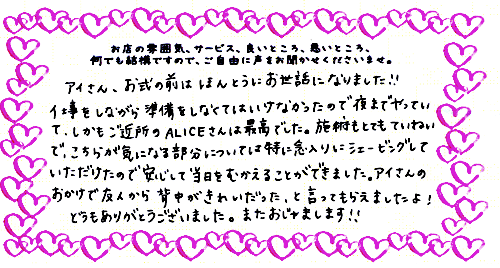 お店の雰囲気、サービス、良いところ、悪いところ、
何でも結構ですので、ご自由に声をお聞かせくださいませ。
アイさん、お式の前は ほんとうにお世話になりました!!
仕事をしながら準備をしなくてはいけなかったので夜までやってい
て、しかもご近所のALICEさんは最高でした。施術もとてもていねい
で、こちらが気になる部分については特に念入りにシェービングして
いただけたので安心して当日をむかえることができました。アイさんの
おかげで友人から背中がきれいだった、と言ってもらえましたよ!
どうもありがとうございました。またおじゃまします!!